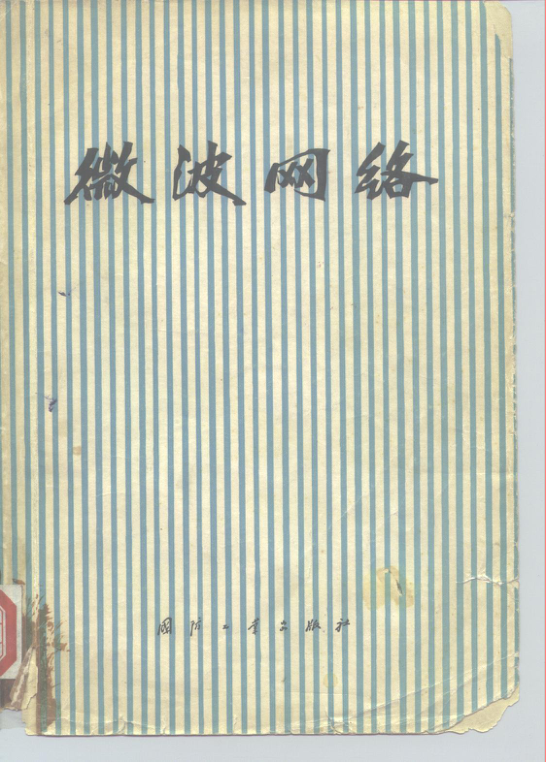 微波网络
国防工业出版社